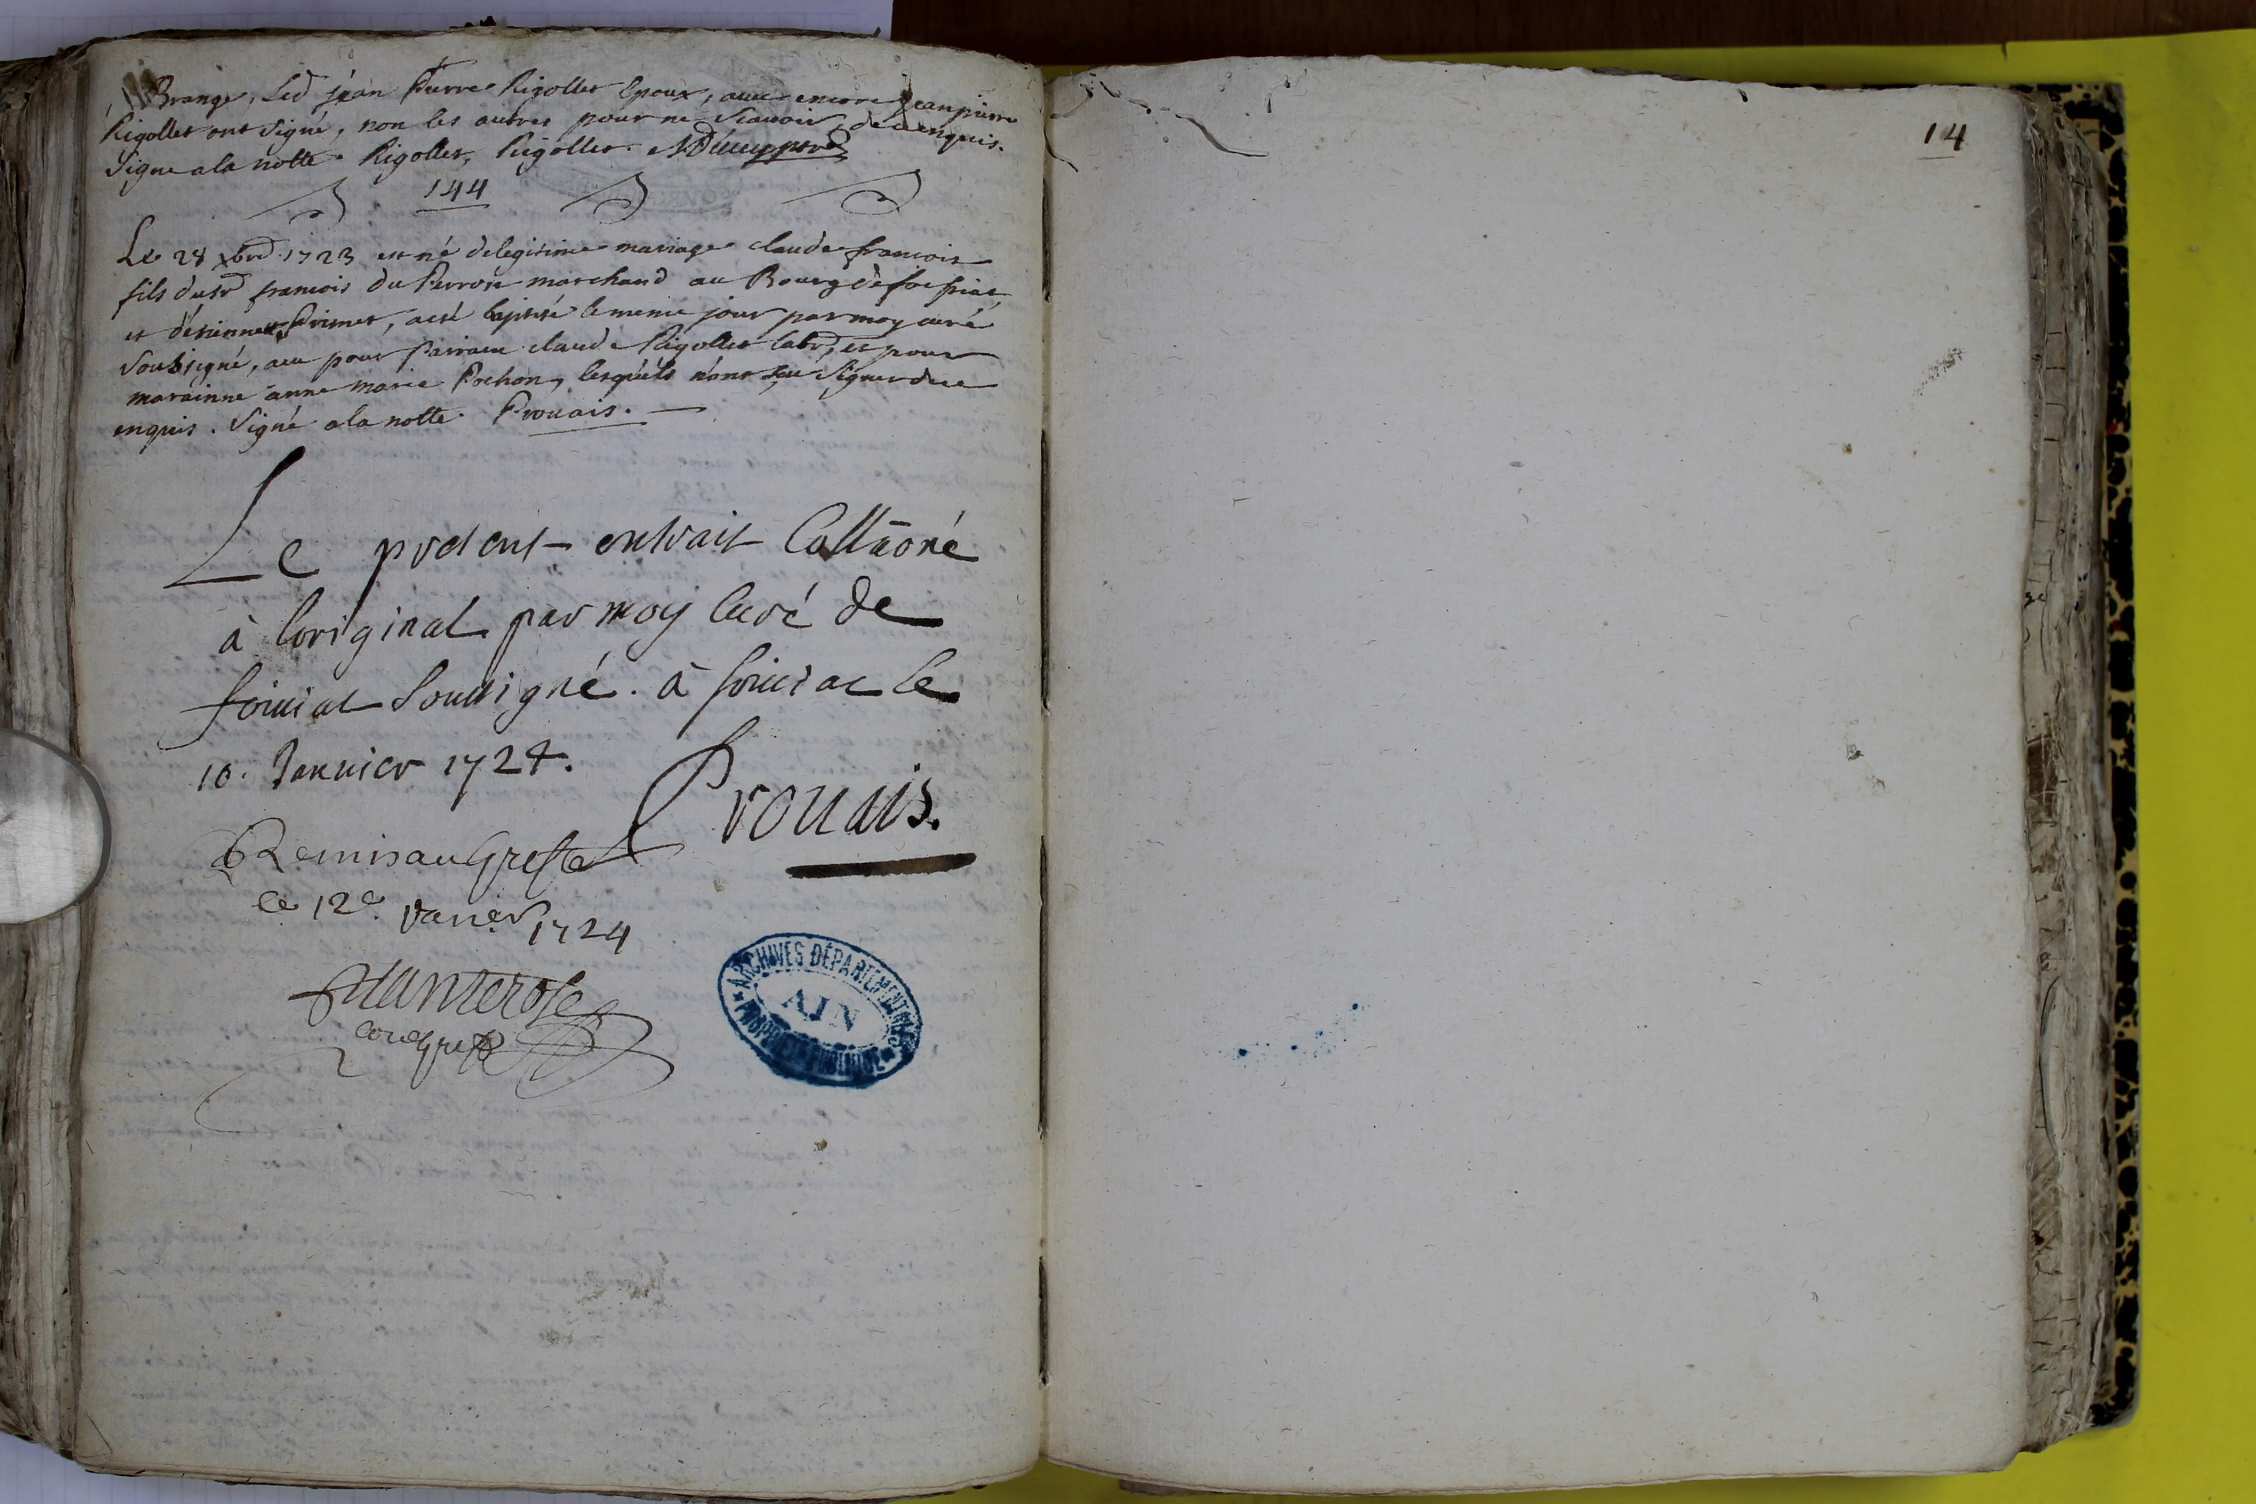 Brange, led jean Pierre Rigollet Epoux, avec encore Jean pierre
Rigollet ont signé, non les autres pour ne scavoir, de ce enquis.
signe a la notte. Rigollet, Rigollet.
144
Le 28 xbre 1723 est né de legitime mariage claude francois
fils du sr francois du Perron marchand au Bourg de foissiat
et d'etiennette Primet, a eté baptisé le meme jour par moy curé
soubsigné, a eu pour Parrain claude Rigollet labr, et pour
marainne anne marie Pochon, lesquels n'ont sçu signer de ce
enquis. Signé a la notte. Prouais.
Le present extrait Collaoné
à loriginal par moy Curé de
foissiat soussigné. à foissiac le
10. Janvier 1724.
Prouais.
Remis au Greffe
ce 12e. Janer 1724
ARCHIVES DÉPARTEMENTALES
AIN
PROPRIÉTÉ PUBLIQUE
14